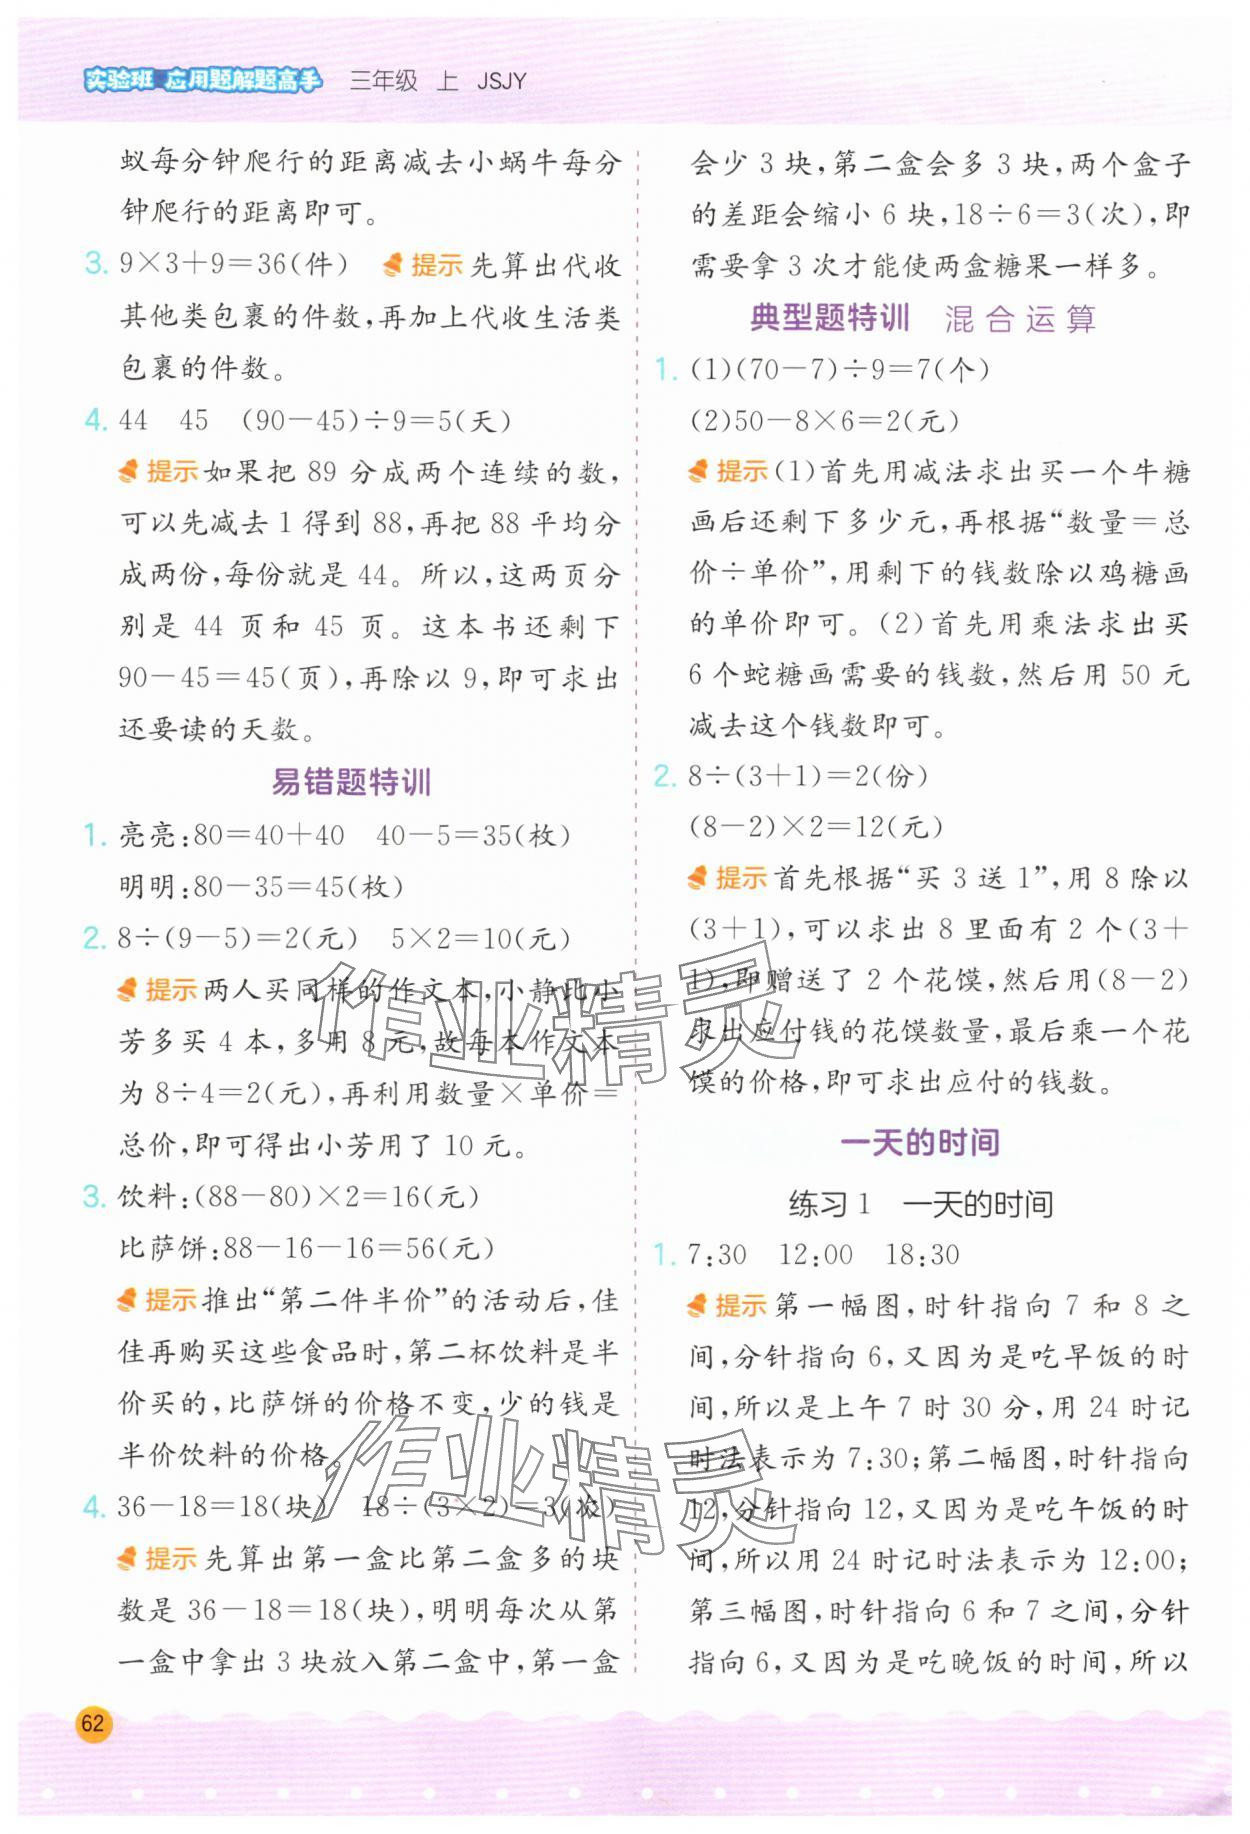 实验班 应用题解题高手 三年级 上 JSJY
蚁每分钟爬行的距离减去小蜗牛每分
钟爬行的距离即可。
3. 9×3+9=36(件) 提示 先算出代收
其他类包裹的件数,再加上代收生活类
包裹的件数。
4. 44 45 (90-45)÷9=5(天)
提示 如果把 89 分成两个连续的数,
可以先减去 1 得到 88,再把 88 平均分
成两份,每份就是 44。所以,这两页分
别是 44 页和 45 页。这本书还剩下
90-45=45(页),再除以 9,即可求出
还要读的天数。
易错题特训
1. 亮亮:80=40+40 40-5=35(枚)
明明:80-35=45(枚)
2. 8÷(9-5)=2(元) 5×2=10(元)
提示 两人买同样的作文本,小静比小
芳多买 4 本,多用 8 元,故每本作文本
为 8÷4=2(元),再利用数量×单价=
总价,即可得出小芳用了 10 元。
3. 饮料:(88-80)×2=16(元)
比萨饼:88-16-16=56(元)
提示 推出“第二件半价”的活动后,佳
佳再购买这些食品时,第二杯饮料是半
价买的,比萨饼的价格不变,少的钱是
半价饮料的价格。
4. 36-18=18(块) 18÷(3×2)=3(次)
提示 先算出第一盒比第二盒多的块
数是 36-18=18(块),明明每次从第
一盒中拿出 3 块放入第二盒中,第一盒
62
会少 3 块,第二盒会多 3 块,两个盒子
的差距会缩小 6 块,18÷6=3(次),即
需要拿 3 次才能使两盒糖果一样多。
典型题特训 混合运算
1. (1)(70-7)÷9=7(个)
(2)50-8×6=2(元)
提示 (1)首先用减法求出买一个牛糖
画后还剩下多少元,再根据“数量=总
价÷单价”,用剩下的钱数除以鸡糖画
的单价即可。(2)首先用乘法求出买
6 个蛇糖画需要的钱数,然后用 50 元
减去这个钱数即可。
2. 8÷(3+1)=2(份)
(8-2)×2=12(元)
提示 首先根据“买 3 送 1”,用 8 除以
(3+1),可以求出 8 里面有 2 个(3+
1),即赠送了 2 个花馍,然后用(8-2)
求出应付钱的花馍数量,最后乘一个花
馍的价格,即可求出应付的钱数。
一天的时间
练习 1 一天的时间
1. 7:30 12:00 18:30
提示 第一幅图,时针指向 7 和 8 之
间,分针指向 6,又因为是吃早饭的时
间,所以是上午 7 时 30 分,用 24 时记
时法表示为 7:30;第二幅图,时针指向
12,分针指向 12,又因为是吃午饭的时
间,所以用 24 时记时法表示为 12:00;
第三幅图,时针指向 6 和 7 之间,分针
指向 6,又因为是吃晚饭的时间,所以
作业精灵
作业精灵